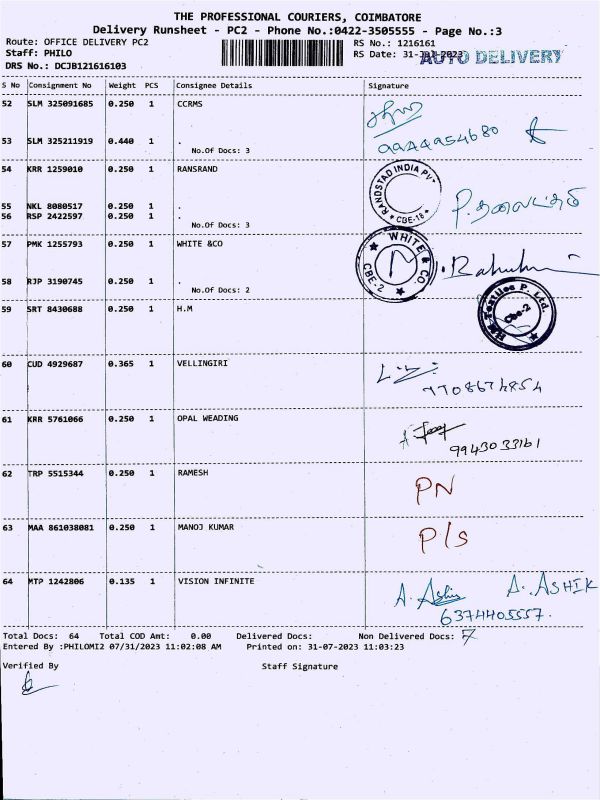 THE PROFESSIONAL COURIERS, COIMBATORE
Delivery Runsheet - PC2 - Phone No.:0422-3505555 - Page No.:3
Route: OFFICE DELIVERY PC2
Staff: PHILO
DRS No.: DCJB121616103
RS No.: 1216161
RS Date: 31-Jul-2023
AUTO DELIVERY
S No Consignment No Weight PCS Consignee Details Signature
52 SLM 325091685 0.250 1 CCRMS
53 SLM 325211919 0.440 1 .
No.Of Docs: 3
54 KRR 1259010 0.250 1 RANSRAND
RANDSTAD INDIA PVT
CBE-18
55 NKL 8080517 0.250 1 .
56 RSP 2422597 0.250 1 .
No.Of Docs: 3
57 PMK 1255793 0.250 1 WHITE &CO
WHITE & CO.
CBE-2
58 RJP 3190745 0.250 1 .
No.Of Docs: 2
59 SRT 8430688 0.250 1 H.M
Textiles P. Ltd.
Cbe-2
60 CUD 4929687 0.365 1 VELLINGIRI
7708674854
61 KRR 5761066 0.250 1 OPAL WEADING
9943033161
62 TRP 5515344 0.250 1 RAMESH
PN
63 MAA 861038081 0.250 1 MANOJ KUMAR
P/s
64 MTP 1242806 0.135 1 VISION INFINITE
A. Ashik A. ASHIK
6374405557.
Total Docs: 64 Total COD Amt: 0.00 Delivered Docs: Non Delivered Docs: 7
Entered By :PHILOMI2 07/31/2023 11:02:08 AM Printed on: 31-07-2023 11:03:23
Verified By Staff Signature